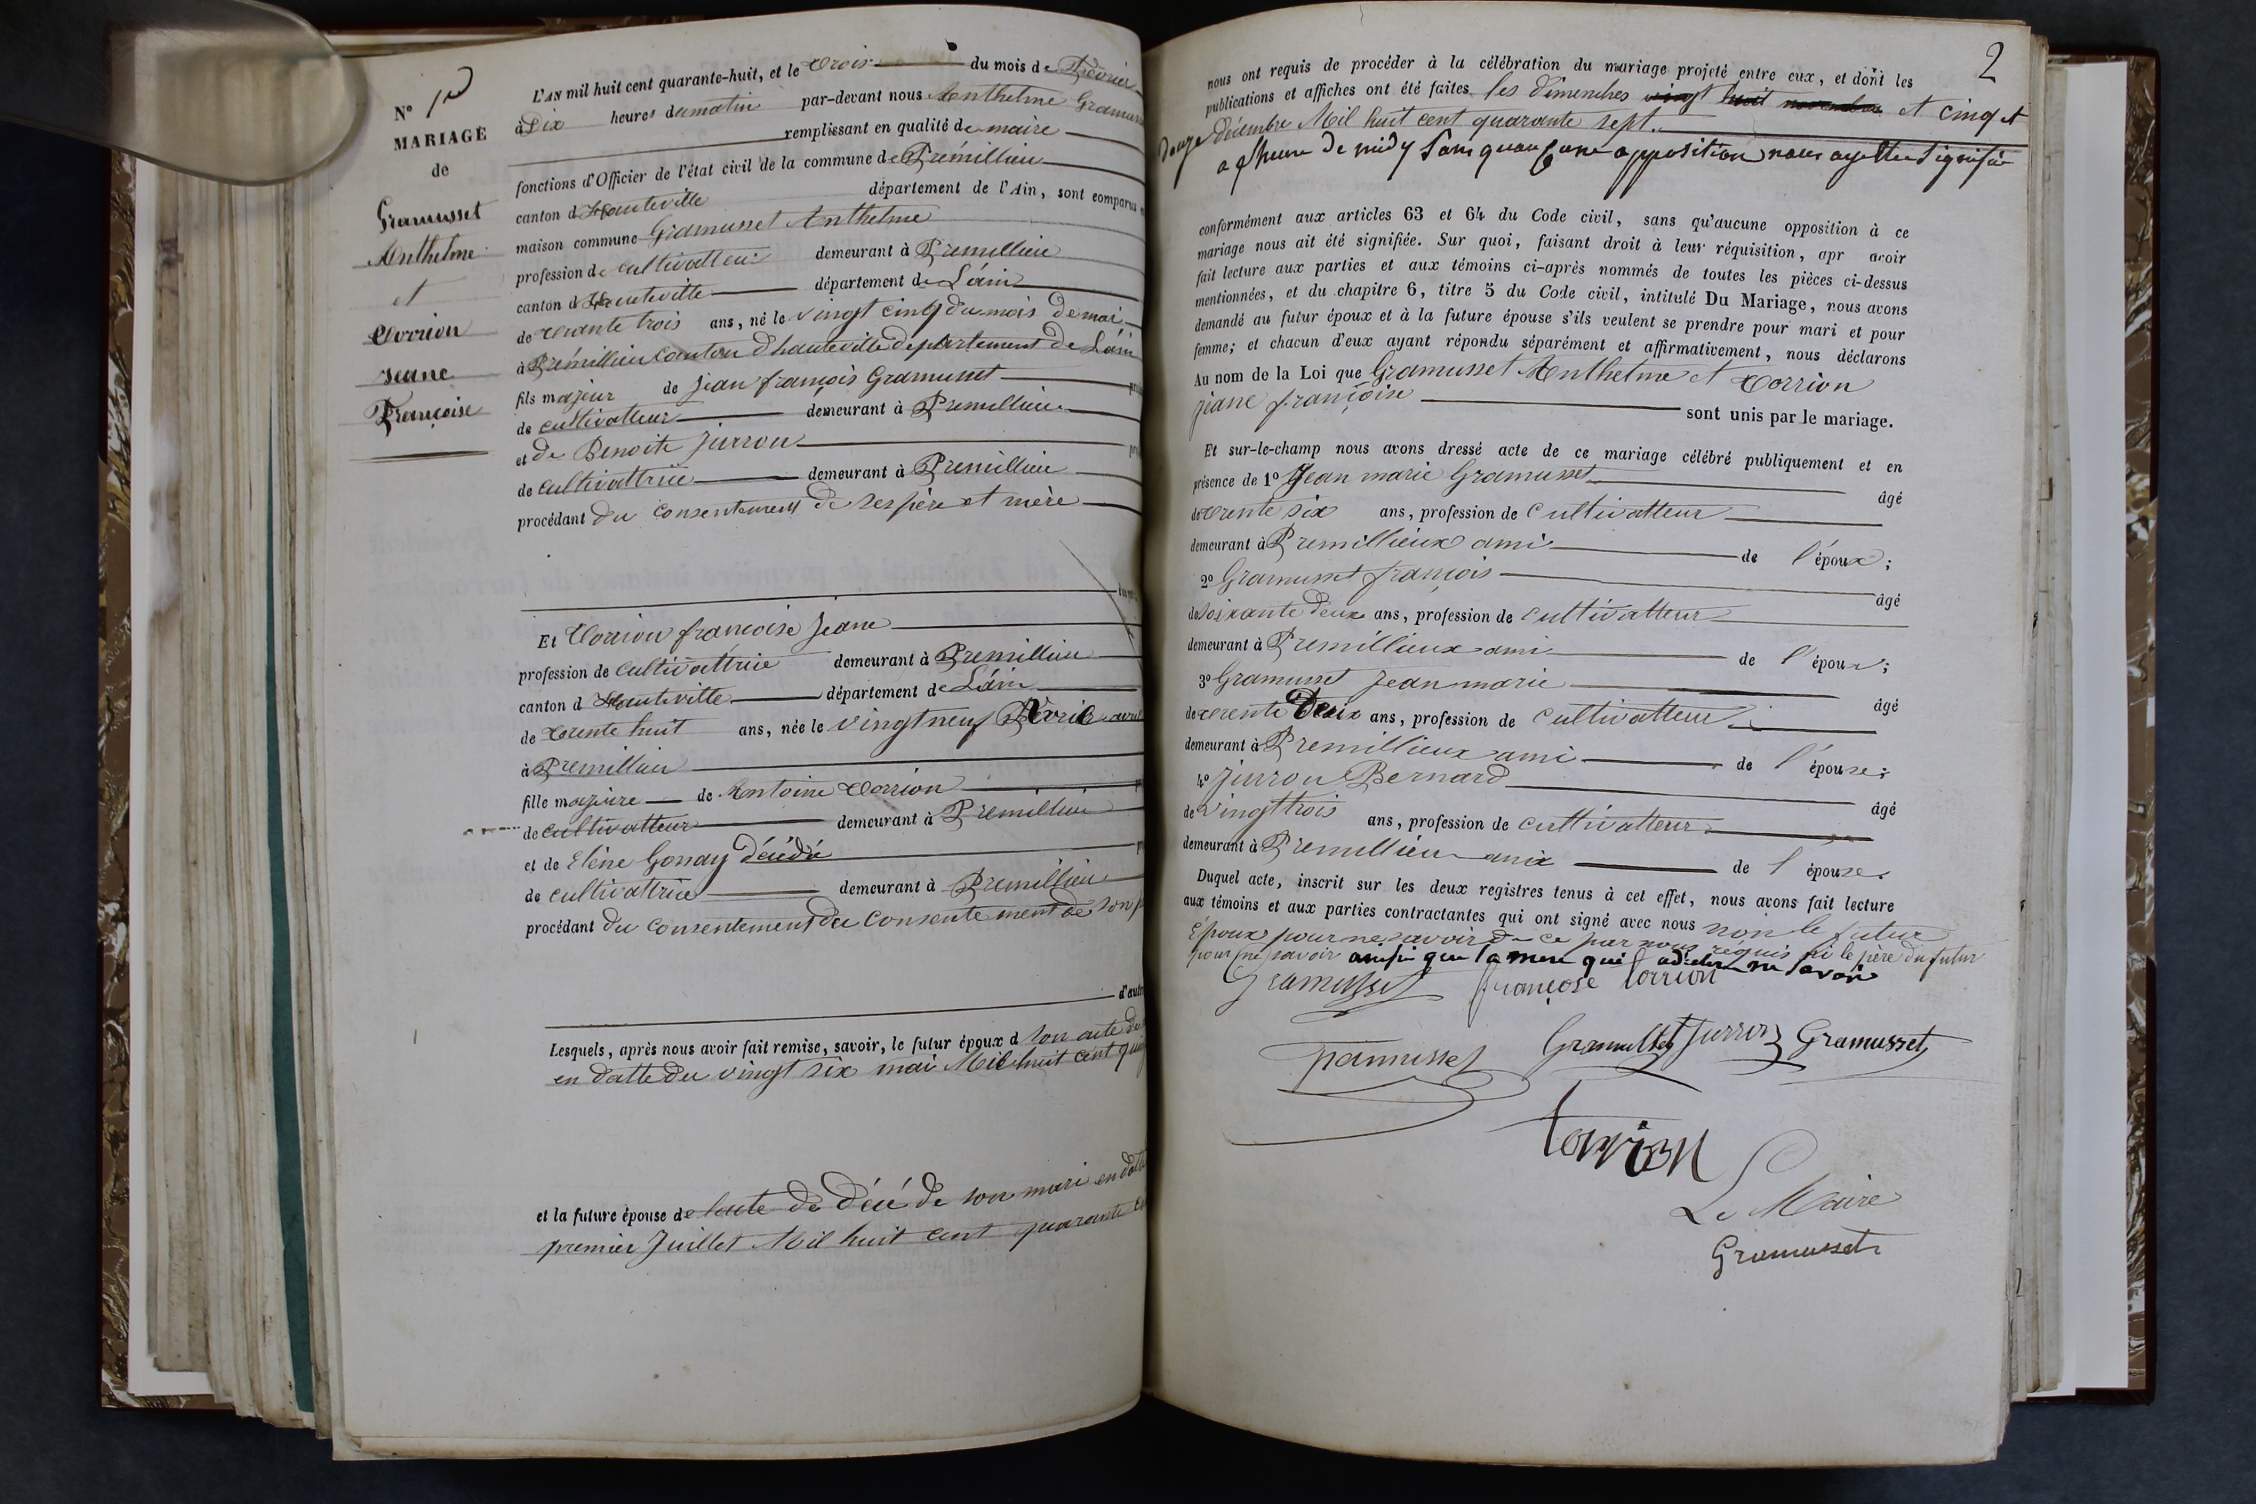 N° 1er
MARIAGE
de
Gramusset
Anthelme
et
Torrion
Jeane
Françoise
L'AN mil huit cent quarante-huit, et le Trois du mois de Février
à Dix heures du matin par-devant nous Anthelme Gramusset
remplissant en qualité de maire
fonctions d'Officier de l'état civil de la commune de Prémillieu
canton d'Hauteville département de l'Ain, sont comparus
maison commune Gramusset Anthelme
profession de cultivatteur demeurant à Premillieu
canton d'Hauteville département de L'ain
de trante trois ans, né le vingt cinq du mois de mai
à Prémillieu canton d'hauteville département de L'ain
fils majeur de Jean françois Gramusset
de cultivatteur demeurant à Premillieu
et de Benoite Jurron
de cultivattrice demeurant à Premillieu
procédant du consentement de ses père et mère
Et Torrion françoise Jeane
profession de cultivattrice demeurant à Premillieu
canton d'Hauteville département de L'ain
de trente huit ans, née le vingt neuf Avril avril
à Premillieu
fille majeure de Antoine Torrion
de cultivatteur demeurant à Premillieu
et de Elène Gonay décédé
de cultivattrice demeurant à Premillieu
procédant du consentement du consentement de son
d'autre
Lesquels, après nous avoir fait remise, savoir, le futur époux d son acte de
en datte du vingt six mai Mil huit cent
et la future épouse de lacte de décé de son mari en datte
premier Juillet Mil huit cent quarante
2
nous ont requis de procéder à la célébration du mariage projeté entre eux, et dont les
publications et affiches ont été faites les dimenches vingt huit novembre et cinq et
douze décembre Mil huit cent quarante sept
a l'heure de midy sans quaucune apposition nous aye ettee signifié
conformément aux articles 63 et 64 du Code civil, sans qu'aucune opposition à ce
mariage nous ait été signifiée. Sur quoi, faisant droit à leur réquisition, apr avoir
fait lecture aux parties et aux témoins ci-après nommés de toutes les pièces ci-dessus
mentionnées, et du chapitre 6, titre 5 du Code civil, intitulé Du Mariage, nous avons
demandé au futur époux et à la future épouse s'ils veulent se prendre pour mari et pour
femme; et chacun d'eux ayant répondu séparément et affirmativement, nous déclarons
Au nom de la Loi que Gramusset Anthelme et Torrion
jeane françoise sont unis par le mariage.
Et sur-le-champ nous avons dressé acte de ce mariage célébré publiquement et en
présence de 1° Jean marie Gramusset âgé
de trente six ans, profession de Cultivatteur
demeurant à Premillieux ami de l'époux;
2° Gramusset françois âgé
de soixante deux ans, profession de cultivatteur
demeurant à Premillieux ami de l'époux;
3° Gramusset Jean marie âgé
de trente Deux ans, profession de cultivatteur
demeurant à Premillieux ami de l'épouse;
4° Jurron Bernard âgé
de vingt trois ans, profession de cultivatteur
demeurant à Premillieu ami de l'épouse.
Duquel acte, inscrit sur les deux registres tenus à cet effet, nous avons fait lecture
aux témoins et aux parties contractantes qui ont signé avec nous non le futur
Époux pour ne savoir de ce par nous réquis ni le père du futur
pour ne savoir ainsi que la mere qui a ne savoir
Gramusset françose torrion
Gramusset Gramusset Jurron Gramusset
torrion
Le Maire
Gramusset